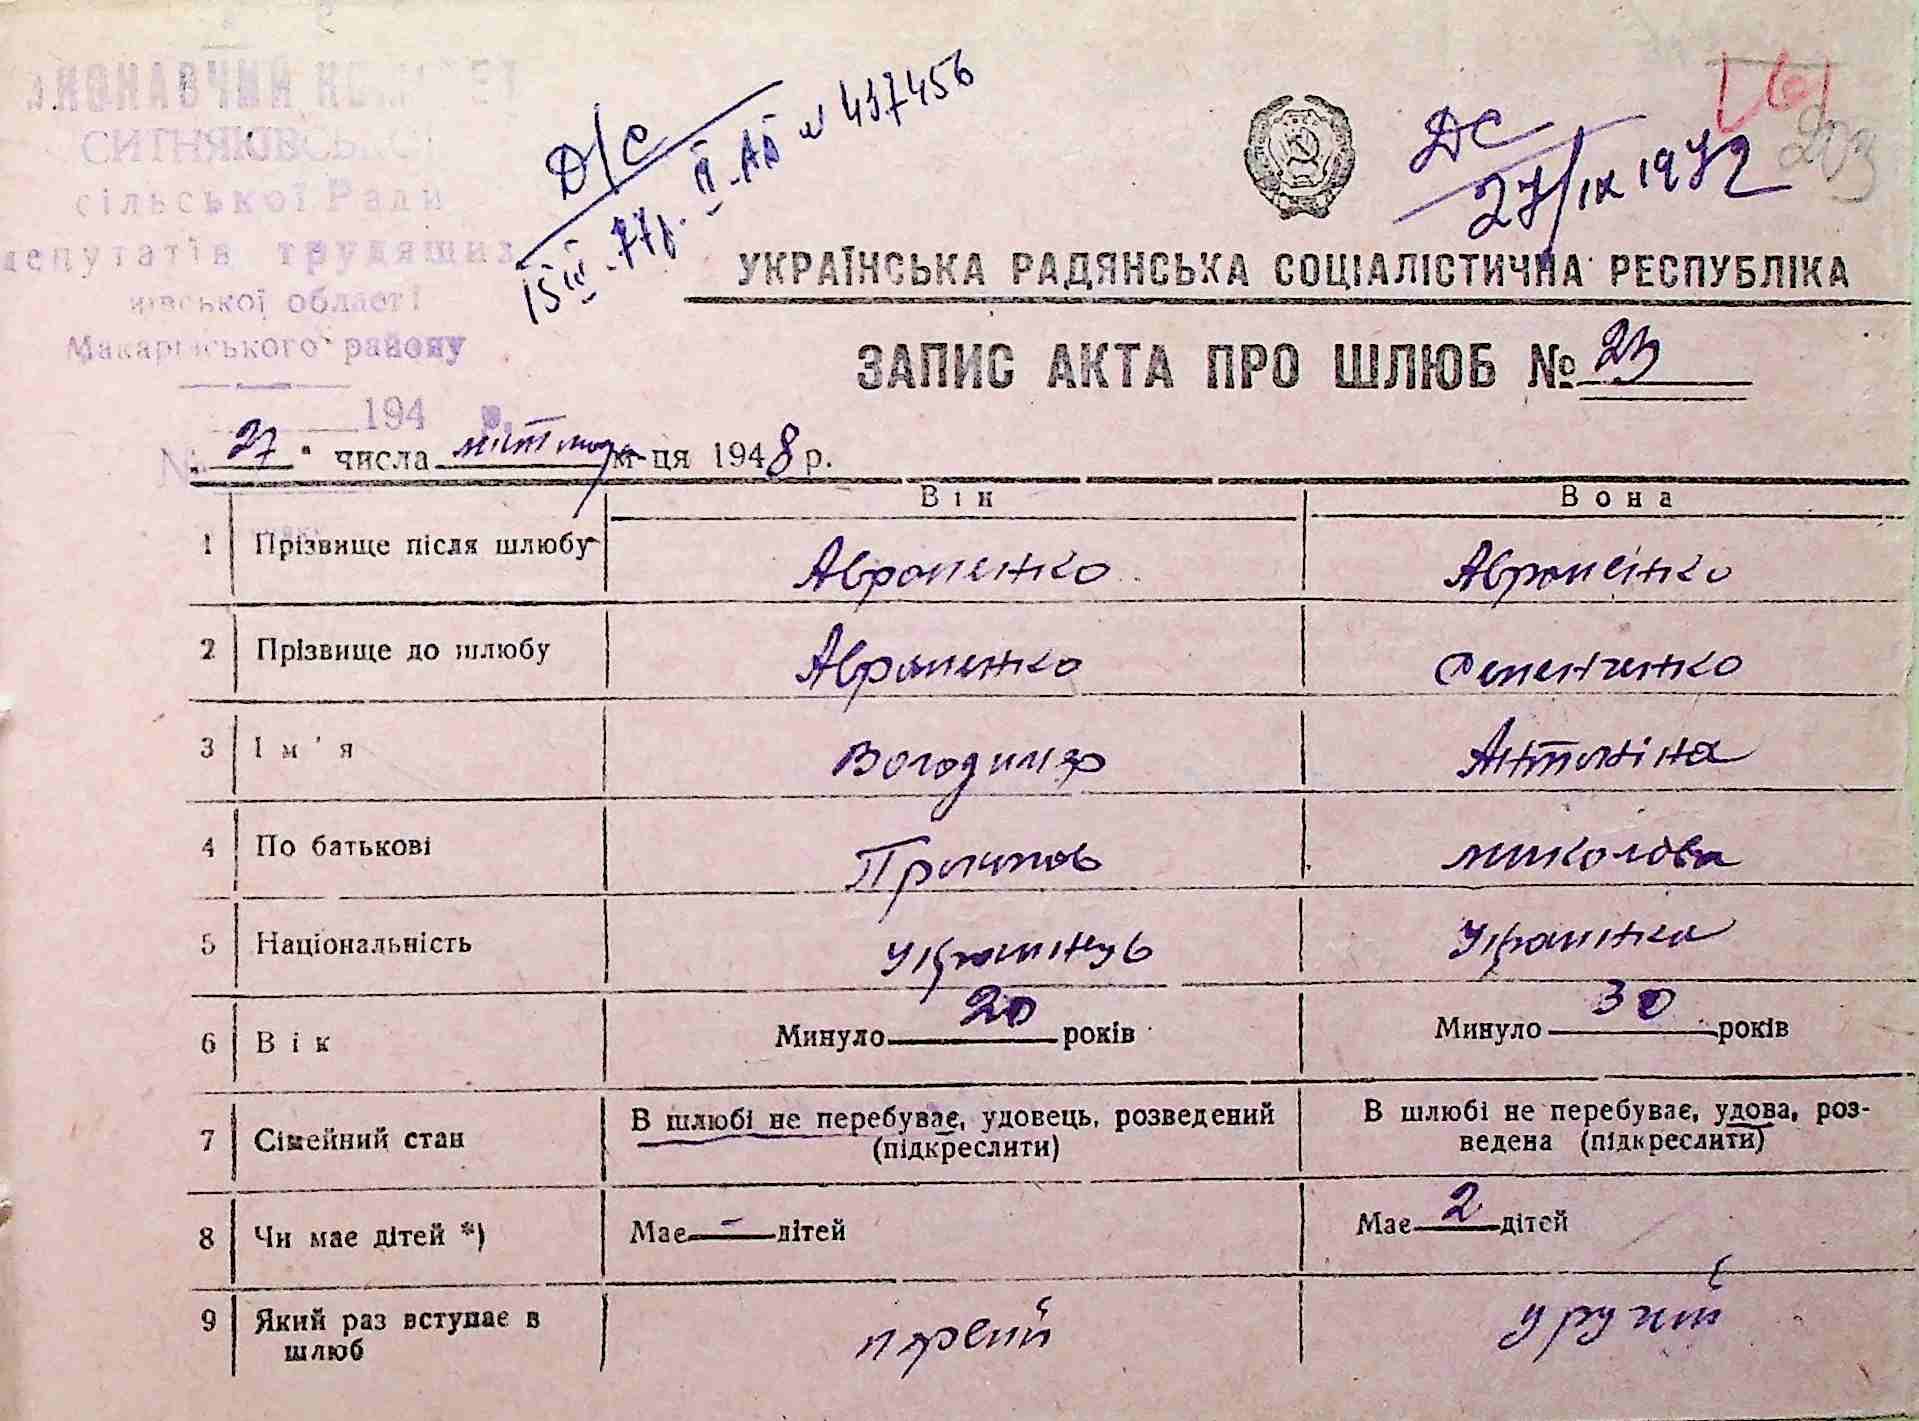 КОНАВЧИЙ КОМІТЕТ
СИТНЯКІВСЬКОЇ
сільської Ради
депутатів трудящих
ївської області
Макарівського району
194 р.
№
Д/С
15 III-77р. II-АБ № 437456
ДС
27/IX 1972
161
203
УКРАЇНСЬКА РАДЯНСЬКА СОЦІАЛІСТИЧНА РЕСПУБЛІКА
ЗАПИС АКТА ПРО ШЛЮБ № 23
27 " числа м-ця 1948 р.
Він Вона
1 Прізвище після шлюбу Авраменко Авраменко
2 Прізвище до шлюбу Авраменко
3 Ім'я Володимир Антоніна
4 По батькові Прокопов Миколова
5 Національність Українець Українка
6 Вік Минуло 20 років Минуло 30 років
7 Сімейний стан В шлюбі не перебуває, удовець, розведений (підкреслити) В шлюбі не перебуває, удова, роз-
ведена (підкреслити)
8 Чи має дітей *) Має - дітей Має 2 дітей
9 Який раз вступає в шлюб первий у другий